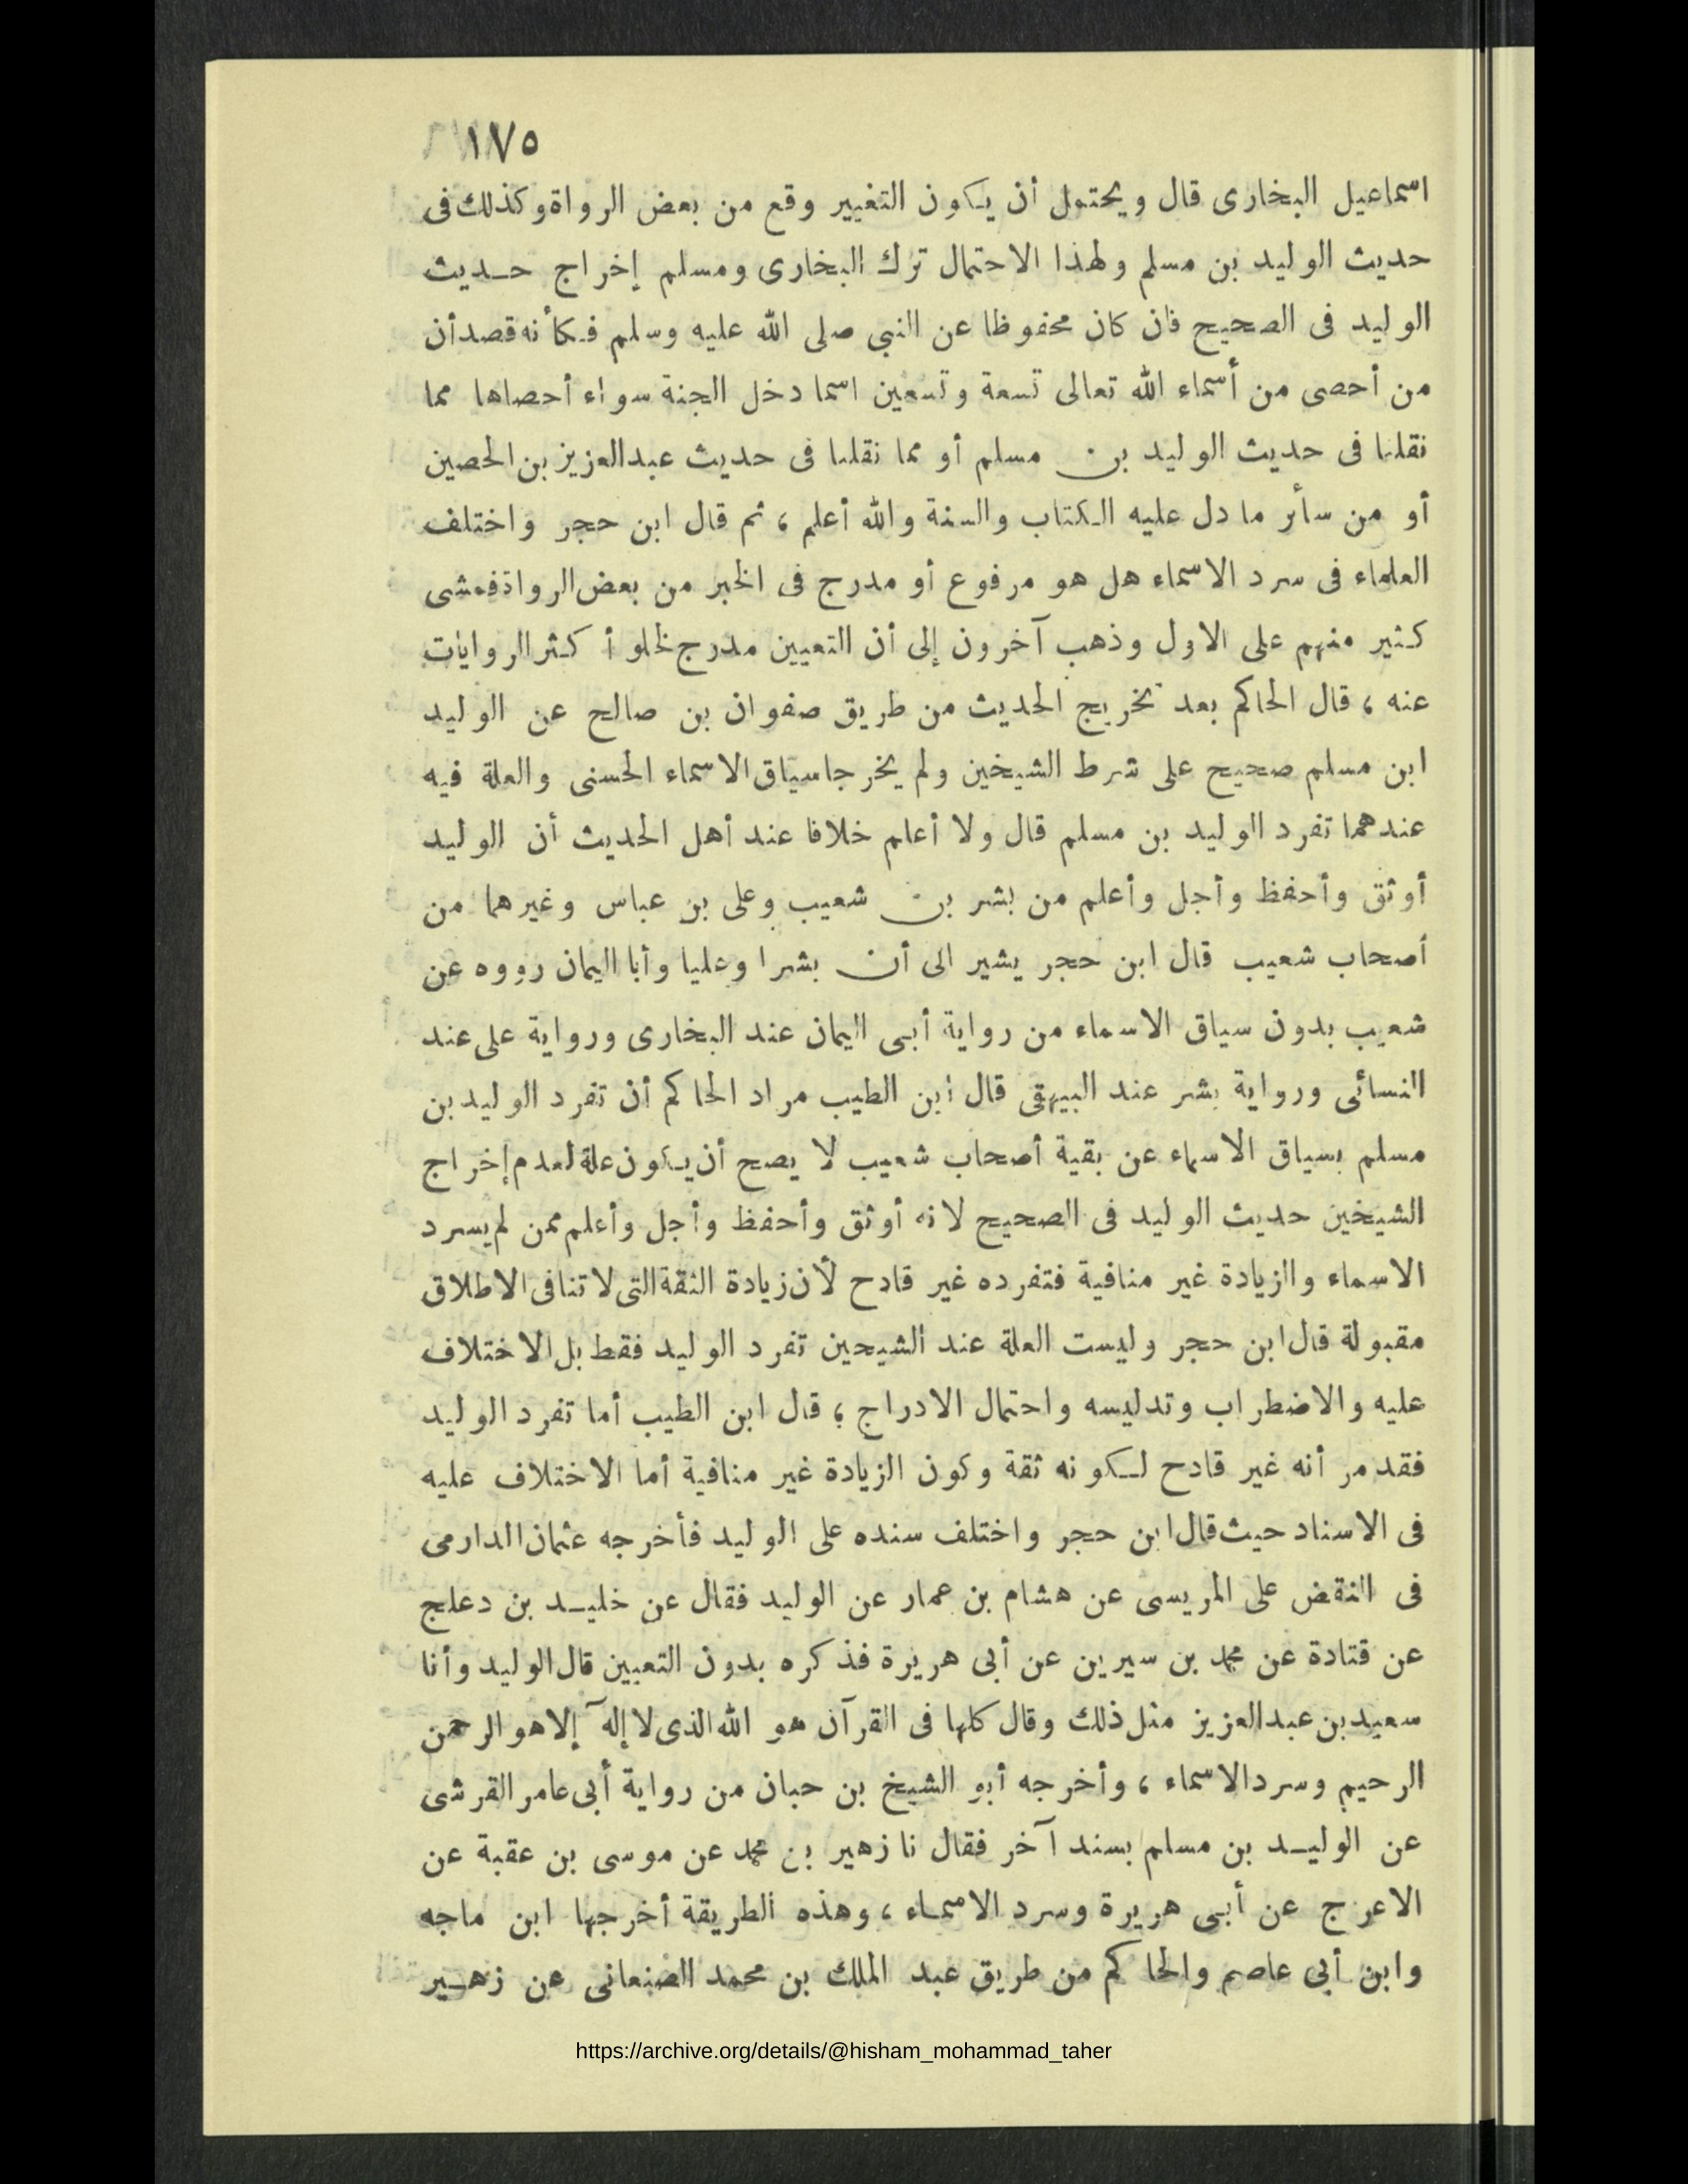 ١٧٥
اسماعيل البخارى قال ويحتمل أن يكون التغيير وقع من بعض الرواة وكذلك فى
حديث الوليد بن مسلم ولهذا الاحتمال ترك البخارى ومسلم إخراج حديث
الوليد فى الصحيح فان كان محفوظا عن النبى صلى الله عليه وسلم فكأنه قصد أن
من أحصى من أسماء الله تعالى تسعة وتسعين اسما دخل الجنة سواء أحصاها مما
نقلنا فى حديث الوليد بن مسلم أو مما نقلنا فى حديث عبدالعزيز بن الحصين
أو من سائر ما دل عليه الكتاب والسنة والله أعلم ، ثم قال ابن حجر واختلف
العلماء فى سرد الاسماء هل هو مرفوع أو مدرج فى الخبر من بعض الرواة فمشى
كثير منهم على الاول وذهب آخرون إلى أن التعيين مدرج لخلو أكثر الروايات
عنه ، قال الحاكم بعد تخريج الحديث من طريق صفوان بن صالح عن الوليد
ابن مسلم صحيح على شرط الشيخين ولم يخرجا سياق الاسماء الحسنى والعلة فيه
عندهما تفرد الوليد بن مسلم قال ولا أعلم خلافا عند أهل الحديث أن الوليد
أوثق وأحفظ وأجل وأعلم من بشر بن شعيب وعلى بن عباس وغيرهما من
أصحاب شعيب قال ابن حجر يشير الى أن بشرا وعليا وأبا اليمان رووه عن
شعيب بدون سياق الاسماء من رواية أبى اليمان عند البخارى ورواية على عند
النسائى ورواية بشر عند البيهقى قال ابن الطيب مراد الحاكم أن تفرد الوليد بن
مسلم بسياق الاسماء عن بقية أصحاب شعيب لا يصح أن يكون علة لعدم إخراج
الشيخين حديث الوليد فى الصحيح لانه أوثق وأحفظ وأجل وأعلم ممن لم يسرد
الاسماء والزيادة غير منافية فتفرده غير قادح لأن زيادة الثقة التى لا تنافى الاطلاق
مقبولة قال ابن حجر وليست العلة عند الشيحين تفرد الوليد فقط بل الاختلاف
عليه والاضطراب وتدليسه واحتمال الادراج ؛ قال ابن الطيب أما تفرد الوليد
فقد مر أنه غير قادح لكونه ثقة وكون الزيادة غير منافية أما الاختلاف عليه
فى الاسناد حيث قال ابن حجر واختلف سنده على الوليد فأخرجه عثمان الدارمى
فى النقض على المريسى عن هشام بن عمار عن الوليد فقال عن خليد بن دعلج
عن قتادة عن محمد بن سيرين عن أبى هريرة فذكره بدون التعيين قال الوليد وأنا
سعيد بن عبدالعزيز مثل ذلك وقال كلها فى القرآن هو الله الذى لا إله إلا هو الرحمن
الرحيم وسرد الاسماء ، وأخرجه أبو الشيخ بن حبان من رواية أبى عامر القرشى
عن الوليد بن مسلم بسند آخر فقال نا زهير بن محمد عن موسى بن عقبة عن
الاعرج عن أبى هريرة وسرد الاسماء ، وهذه الطريقة أخرجها ابن ماجه
وابن أبى عاصم والحاكم من طريق عبد الملك بن محمد الصنعانى عن زهير
https://archive.org/details/@hisham_mohammad_taher